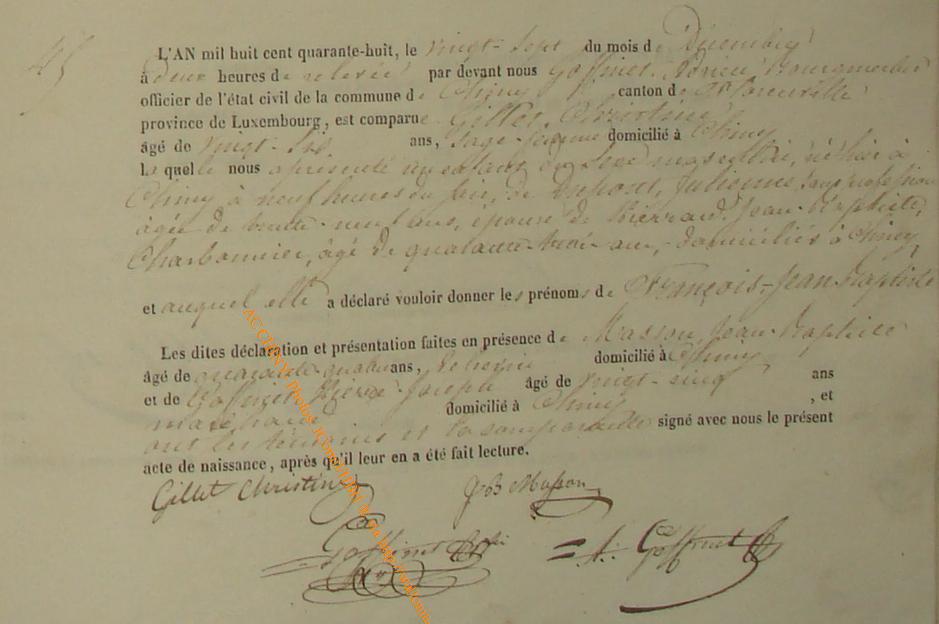 45
L'AN mil huit cent quarante-huit, le vingt-sept du mois de Décembre
à deux heures de relevée par devant nous Goffinet, Adrien, Bourgmestre
officier de l'état civil de la commune de Chiny canton de Florenville
province de Luxembourg, est comparue Gillet, Christine
âgé de vingt-six ans, sage-femme domicilié à Chiny
laquelle nous a présenté un enfant du sexe masculin, né hier à
Chiny à neuf heures du soir, de Dupont, Julienne, sans profession
âgée de trente-neuf ans, épouse de Pierrard Jean-Baptiste,
Charbonnier, âgé de quarante-trois ans, domiciliés à Chiny,
et auquel elle a déclaré vouloir donner les prénoms de François-Jean-Baptiste
Les dites déclaration et présentation faites en présence de Masson Jean-Baptiste
âgé de quarante-quatre ans, domicilié à Chiny
et de Goffinet Pierre-Joseph âgé de vingt-cinq ans
maréchal domicilié à Chiny, et
ont les témoins et la comparante signé avec nous le présent
acte de naissance, après qu'il leur en a été fait lecture.
Gillet Christine JB Masson
Goffinet A. Goffinet